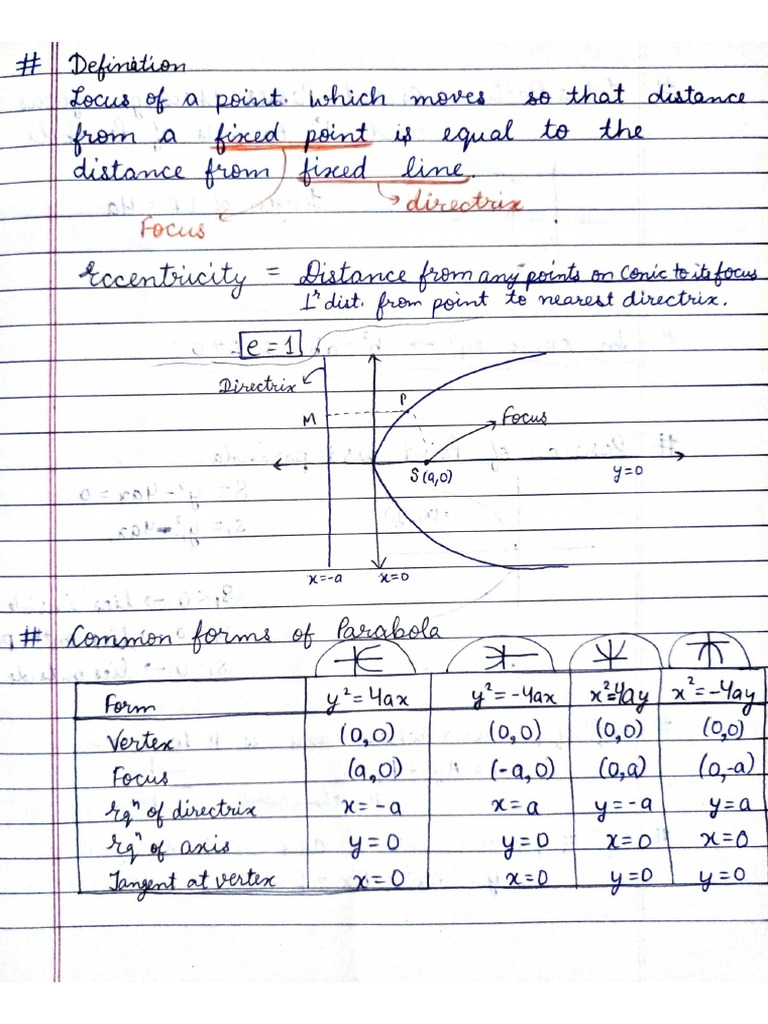 # Definition
Locus of a point. which moves so that distance
from a fixed point is equal to the
distance from fixed line.
directrix
Focus
Eccentricity = Distance from any points on conic to its focus
⊥ʳ dist. from point to nearest directrix.
e = 1
Directrix
P
M
Focus
S(a,0)
y=0
x=-a x=0
# Common forms of Parabola
Form y² = 4ax y² = -4ax x² = 4ay x² = -4ay
Vertex (0,0) (0,0) (0,0) (0,0)
Focus (a,0) (-a,0) (0,a) (0,-a)
Eqⁿ of directrix x = -a x = a y = -a y = a
Eqⁿ of axis y = 0 y = 0 x = 0 x = 0
Tangent at vertex x = 0 x = 0 y = 0 y = 0